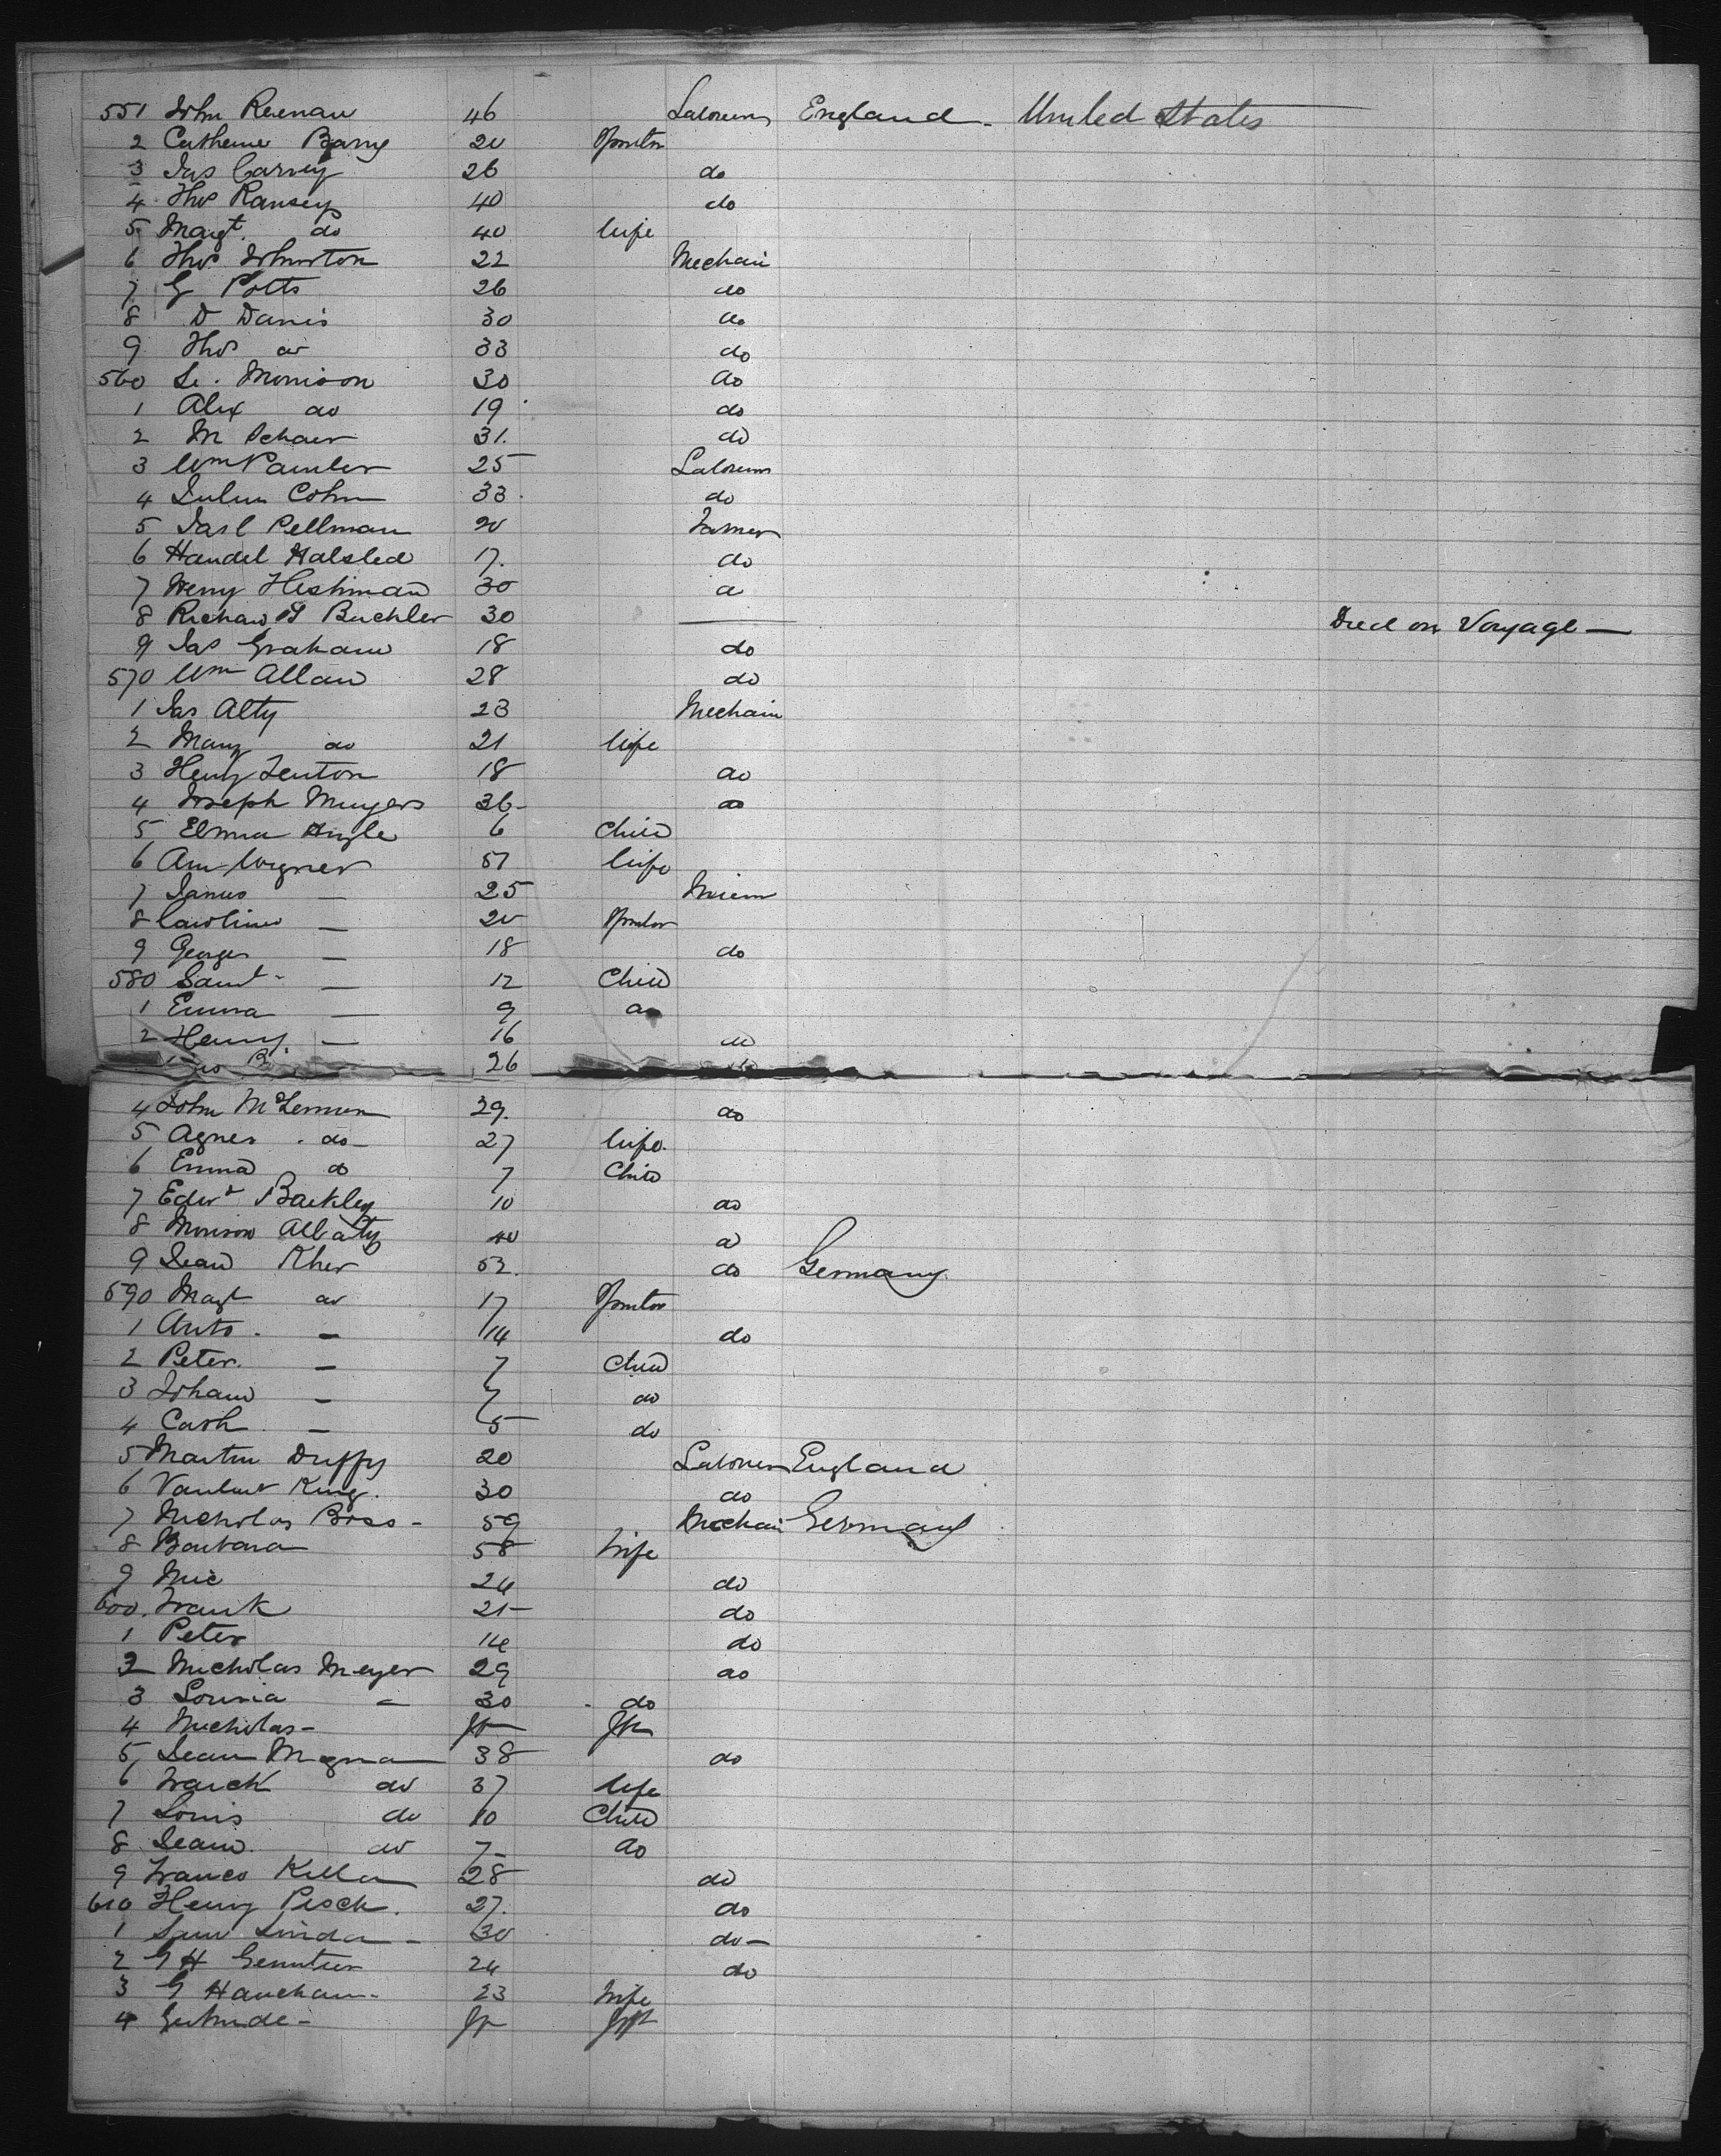 551 John Reenan 46 Laborers England United States
2 Catherine Barry 20 Spinster
3 Jas Carvey 26 do
4 Thos Ransey 40 do
5 Margt do 40 Wife
6 Thos Johnston 22 Mechani
7 G Potts 26 do
8 D Davis 30 do
9 Thos do 33 do
560 Morrison 30 do
1 Alex do 19 do
2 M 31 do
3 Wm 25 Laborers
4 Julius Cohn 33 do
5 Pellman 20 Farmer
6 Handel Halsted 17 do
7 30 do
8 Richard Buchler 30 — Died on Voyage —
9 Jas Graham 18 do
570 Wm Allan 28 do
1 Jas Alty 23 Mechani
2 Mary do 21 Wife
3 Henry 18 do
4 Joseph Muyers 36 do
5 6 Child
6 Ann 57 Wife
7 — 25
8 Caroline — 20 Spinster
9 George — 18 do
580 Saml — 12 Child
1 Emma — 9 do
2 Henry — 16 do
26
4 John 29 do
5 Agnes do 27 Wife
6 Emma do 7 Child
7 Edwd Backley 10 do
8 40 do
9 Jean Kher 52 do Germany
590 Magt do 17 Spinster
1 Anto — 14 do
2 Peter — 7 Child
3 Johann — 7 do
4 Cath — 5 do
5 Martin Duffy 20 Laborers England
6 King 30 do
7 Nicholas Boss 59 Mechani Germany
8 Barbara 58 Wife
9 Nic 24 do
600 Frank 21 do
1 Peter 14 do
2 Nicholas Meyer 29 do
3 Lousia — 30 do
4 Nicholas —
5 Jean 38 do
6 do 37 Wife
7 Louis do 10 Child
8 Jean do 7 do
9 28 do
610 Henry Pesch 27 do
1 30 do —
2 24 do
3 G 23 Wife
4 Gertrude —